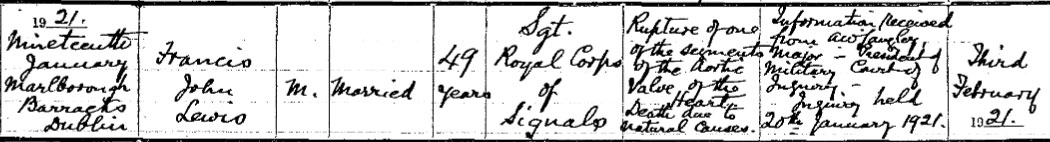 1921.
Nineteenth
January
Marlborough
Barracks
Dublin
Francis
John
Lewis
M.
Married
49
years
Sgt.
Royal Corps
of
Signals
Rupture of one
of the segments
of the Aortic
Valve of the
Heart
Death due to
natural causes.
Information Received
from A W Langley
Major - President of
Military Court of
Inquiry -
Inquiry held
20th January 1921.
Third
February
1921.